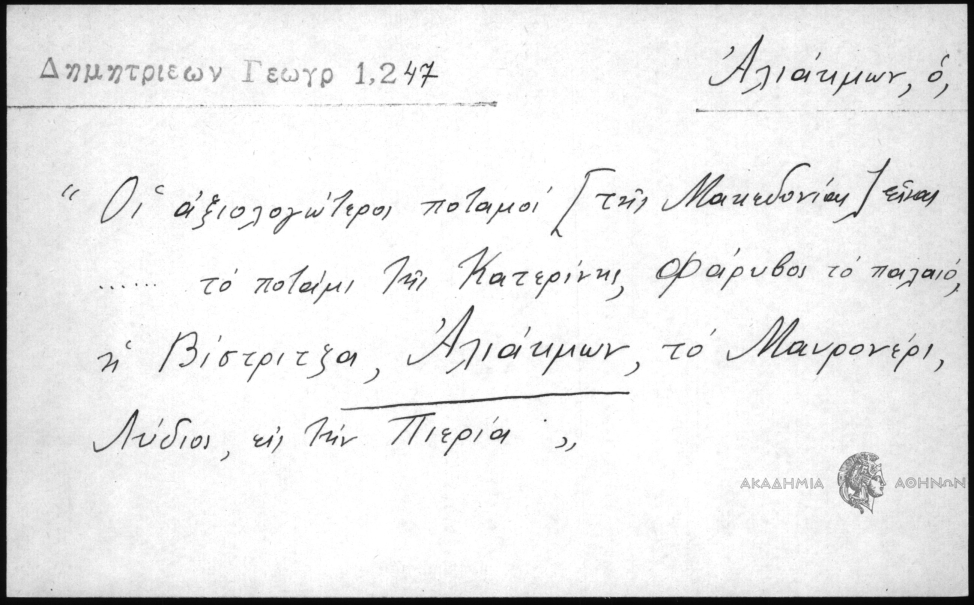 Δημητριεων Γεωγρ 1,247
Ἀλιάκμων, ὁ,
“ Οἱ ἀξιολογώτεροι ποταμοί [τῆς Μακεδονίας] εἶναι
...... τό ποτάμι τῆς Κατερίνης, Φάρυβος τό παλαιό,
ἡ Βίστριτζα, Ἀλιάκμων, τό Μαυρονέρι,
Λύδιος, εἰς τήν Πιερία „
ΑΚΑΔΗΜΙΑ ΑΘΗΝΩΝ